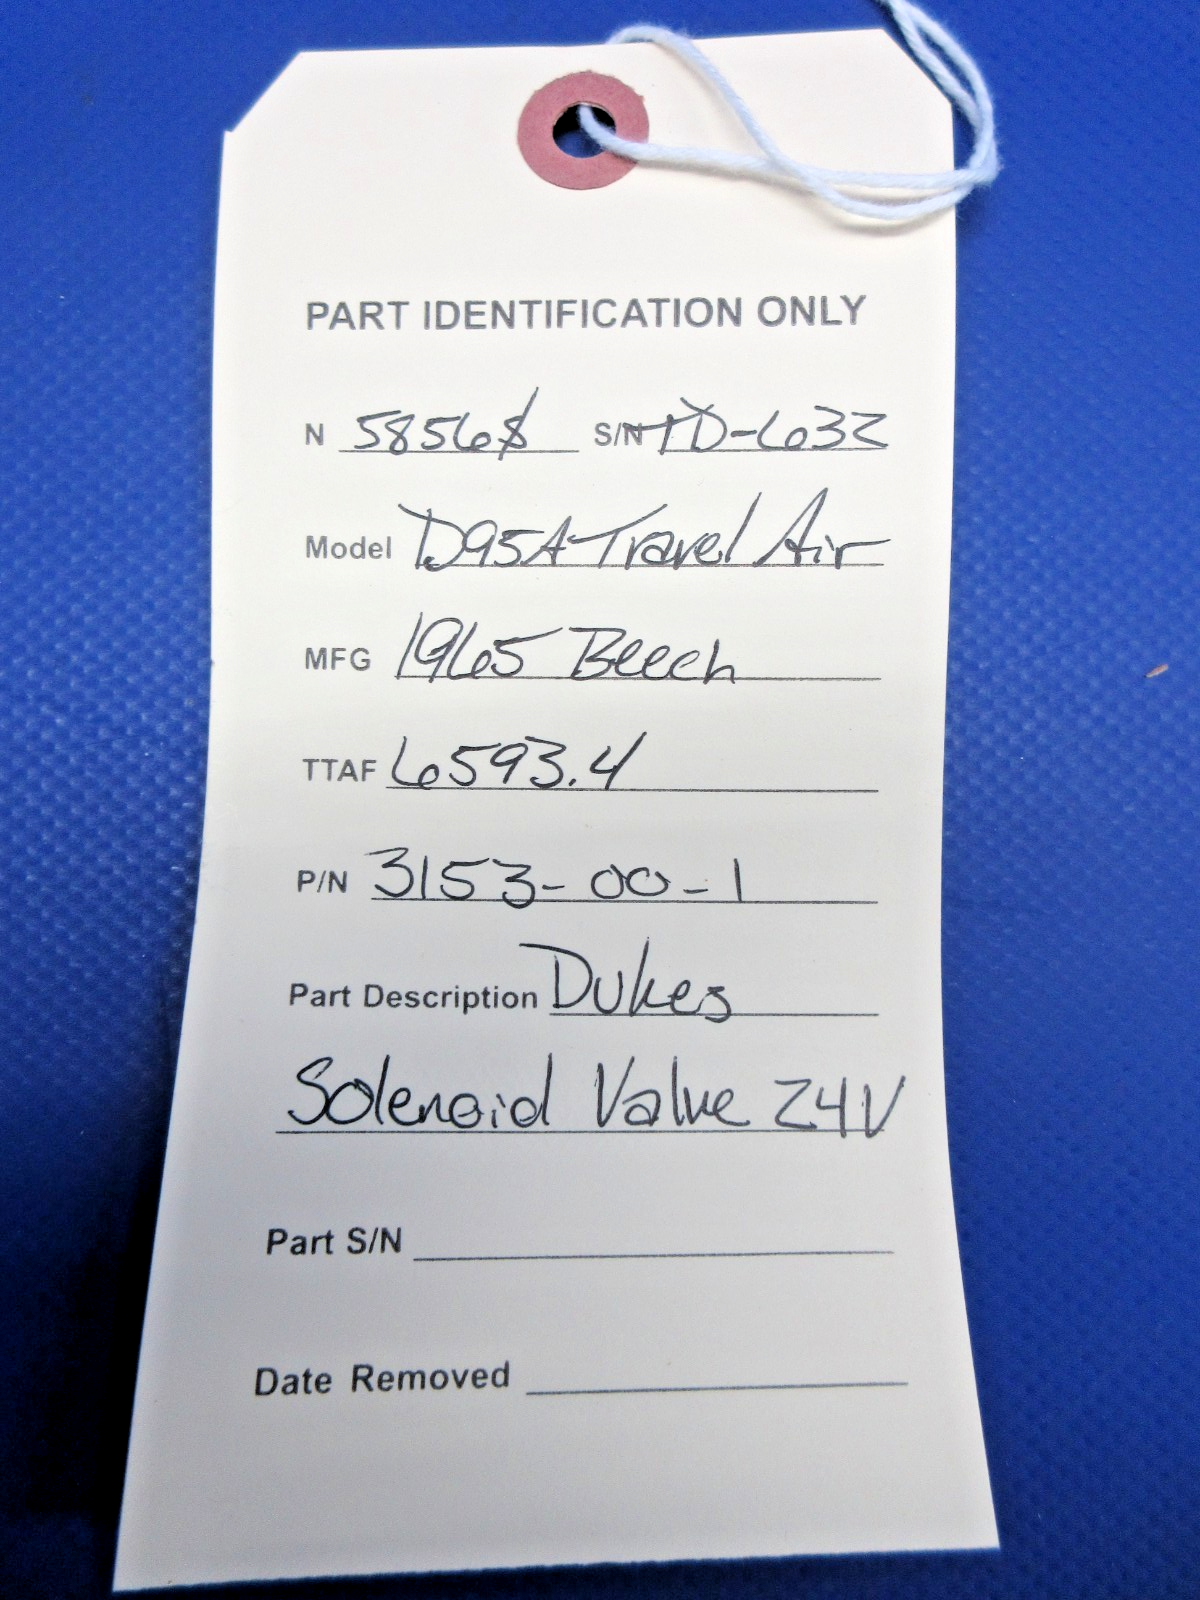 PART IDENTIFICATION ONLY
N 5856S S/N TD-632
Model D95A Travel Air
MFG 1965 Beech
TTAF 6593.4
P/N 3153-00-1
Part Description Dukes
Solenoid Valve 24V
Part S/N
Date Removed